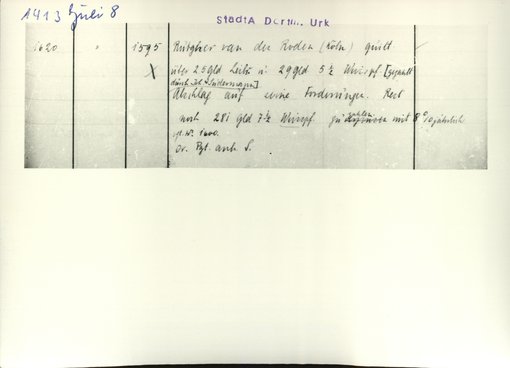 1413 Juli 8
StadtA Dortm. Urk
1620 " 1595 Rütgher van der Roden (Köln) quit
über 25 gld Leibr. u 29 gld 5 1/2 [gezahlt
durch Sudermann]
Abschlag auf seine Forderungen. Rest
noch 281 gld 7 1/2 zu zahlen mit 8% jährlich
gl. Nr. 1600.
Or. Pgt. anh S.